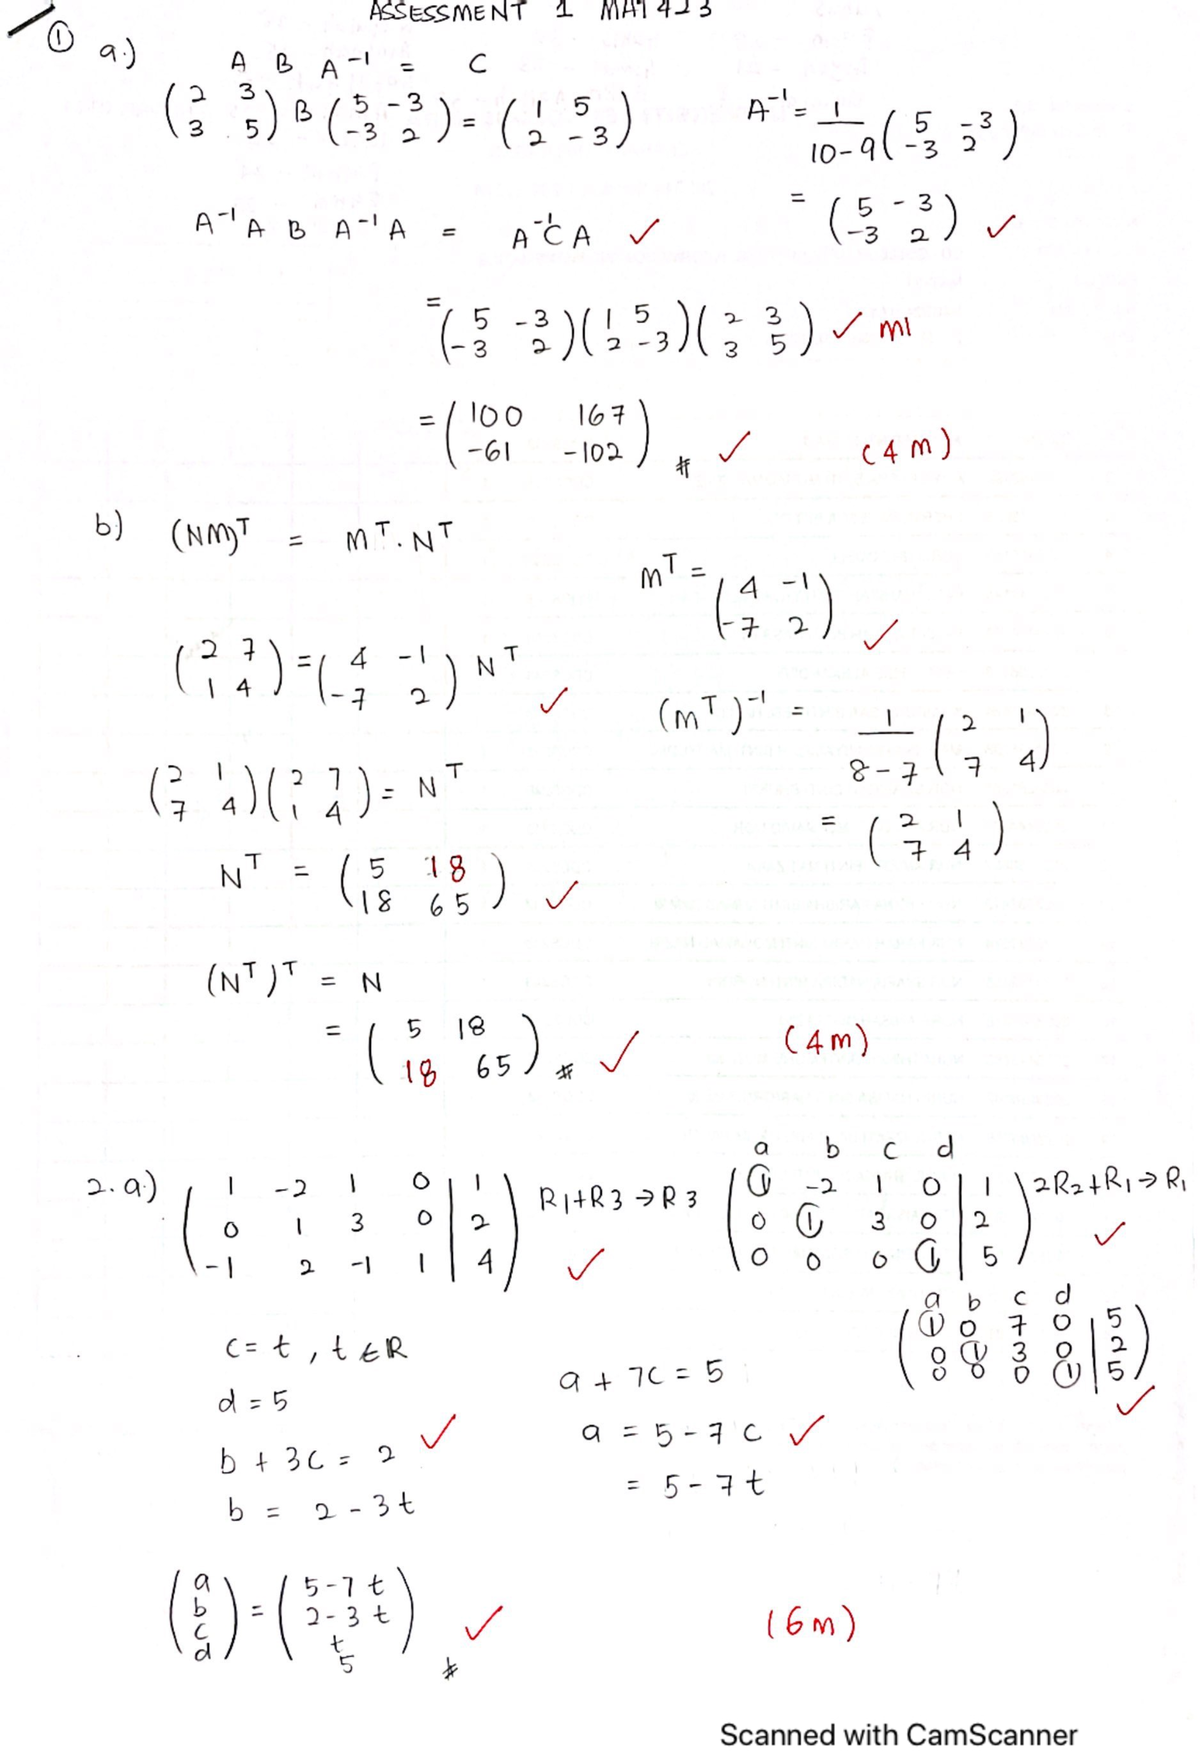 ASSESSMENT 1 MAT423
① a.) A B A⁻¹ = C
(2 3; 3 5) B (5 -3; -3 2) = (1 5; 2 -3)
A⁻¹ = 1/(10-9) (5 -3; -3 2)
= (5 -3; -3 2) ✓
A⁻¹A B A⁻¹A = A⁻¹CA ✓
= (5 -3; -3 2)(1 5; 2 -3)(2 3; 3 5) ✓ m1
= (100 167; -61 -102) # ✓ (4m)
b) (NM)ᵀ = Mᵀ.Nᵀ
Mᵀ = (4 -1; -7 2) ✓
(2 7; 1 4) = (4 -1; -7 2) Nᵀ ✓
(Mᵀ)⁻¹ = 1/(8-7) (2 1; 7 4)
(2 1; 7 4)(2 7; 1 4) = Nᵀ
= (2 1; 7 4)
Nᵀ = (5 18; 18 65) ✓
(Nᵀ)ᵀ = N
= (5 18; 18 65) # ✓ (4m)
2.a.) (1 -2 1 0 | 1; 0 1 3 0 | 2; -1 2 -1 1 | 4) R1+R3→R3 ✓
a b c d
(① -2 1 0 | 1; 0 ① 3 0 | 2; 0 0 0 ① | 5) 2R2+R1→R1 ✓
a b c d
(① 0 7 0 | 5; 0 ① 3 0 | 2; 0 0 0 ① | 5) ✓
c = t , t ∈ R
d = 5
b + 3c = 2 ✓
b = 2 - 3t
a + 7c = 5
a = 5 - 7c ✓
= 5 - 7t
(a; b; c; d) = (5-7t; 2-3t; t; 5) # ✓ (6m)
Scanned with CamScanner